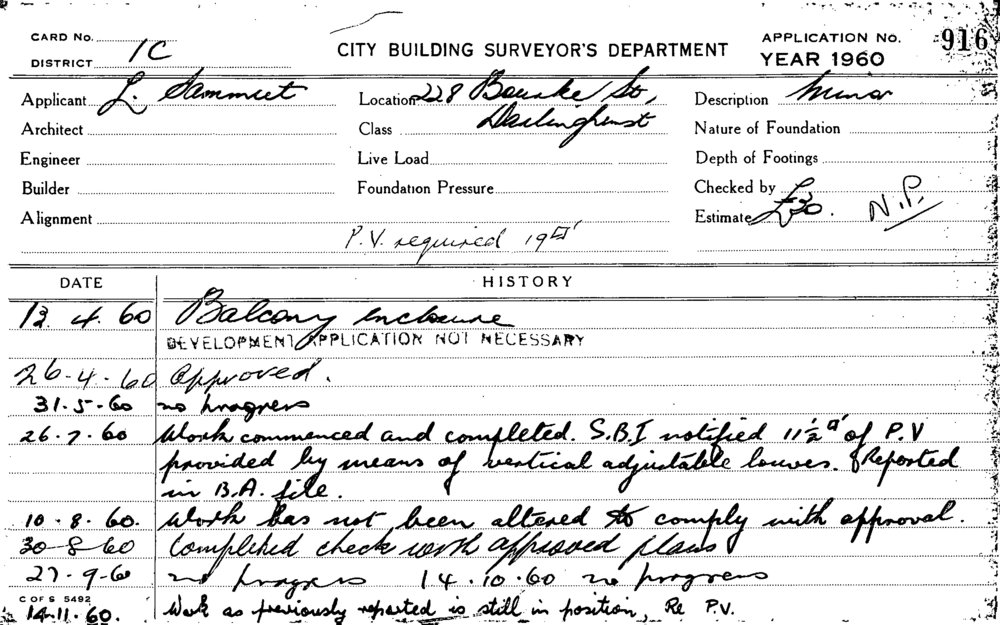 CARD No. 1C
DISTRICT
CITY BUILDING SURVEYOR'S DEPARTMENT
APPLICATION No. 916
YEAR 1960
Applicant L. Sammut
Location 228 Bourke St,
Description Minor
Architect
Class Darlinghurst
Nature of Foundation
Engineer
Live Load
Depth of Footings
Builder
Foundation Pressure
Checked by
Alignment
Estimate £30. N.P.
P.V. required 19
DATE HISTORY
13. 4. 60 Balcony enclosure
DEVELOPMENT APPLICATION NOT NECESSARY
26-4-60 Approved.
31.5-60 no progress
26.7.60 Work commenced and completed. S.B.I notified 11½ of P.V
provided by means of vertical adjustable louvres. Reported
in B.A. file.
10.8.60. Work has not been altered to comply with approval.
30-8-60 Completed check with approved plans
27.9-60 no progress 14.10.60 no progress
C OF S 5492
14.11.60. Work as previously reported is still in position, Re P.V.